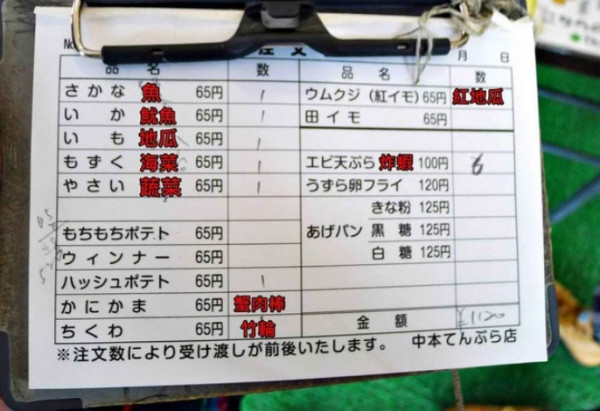 No. 注文 月 日
品名 数 品名 数
さかな 魚 65円 1 ウムクジ（紅イモ）65円 紅地瓜
いか 魷魚 65円 1 田イモ 65円
いも 地瓜 65円 1
もずく 海菜 65円 1 エビ天ぷら 炸蝦 100円 6
やさい 蔬菜 65円 1 うずら卵フライ 120円
きな粉 125円
もちもちポテト 65円 あげパン 黒糖 125円
ウィンナー 65円 白糖 125円
ハッシュポテト 65円 1
かにかま 65円 蟹肉棒
ちくわ 65円 竹輪 金額 ¥1120
※注文数により受け渡しが前後いたします。 中本てんぷら店